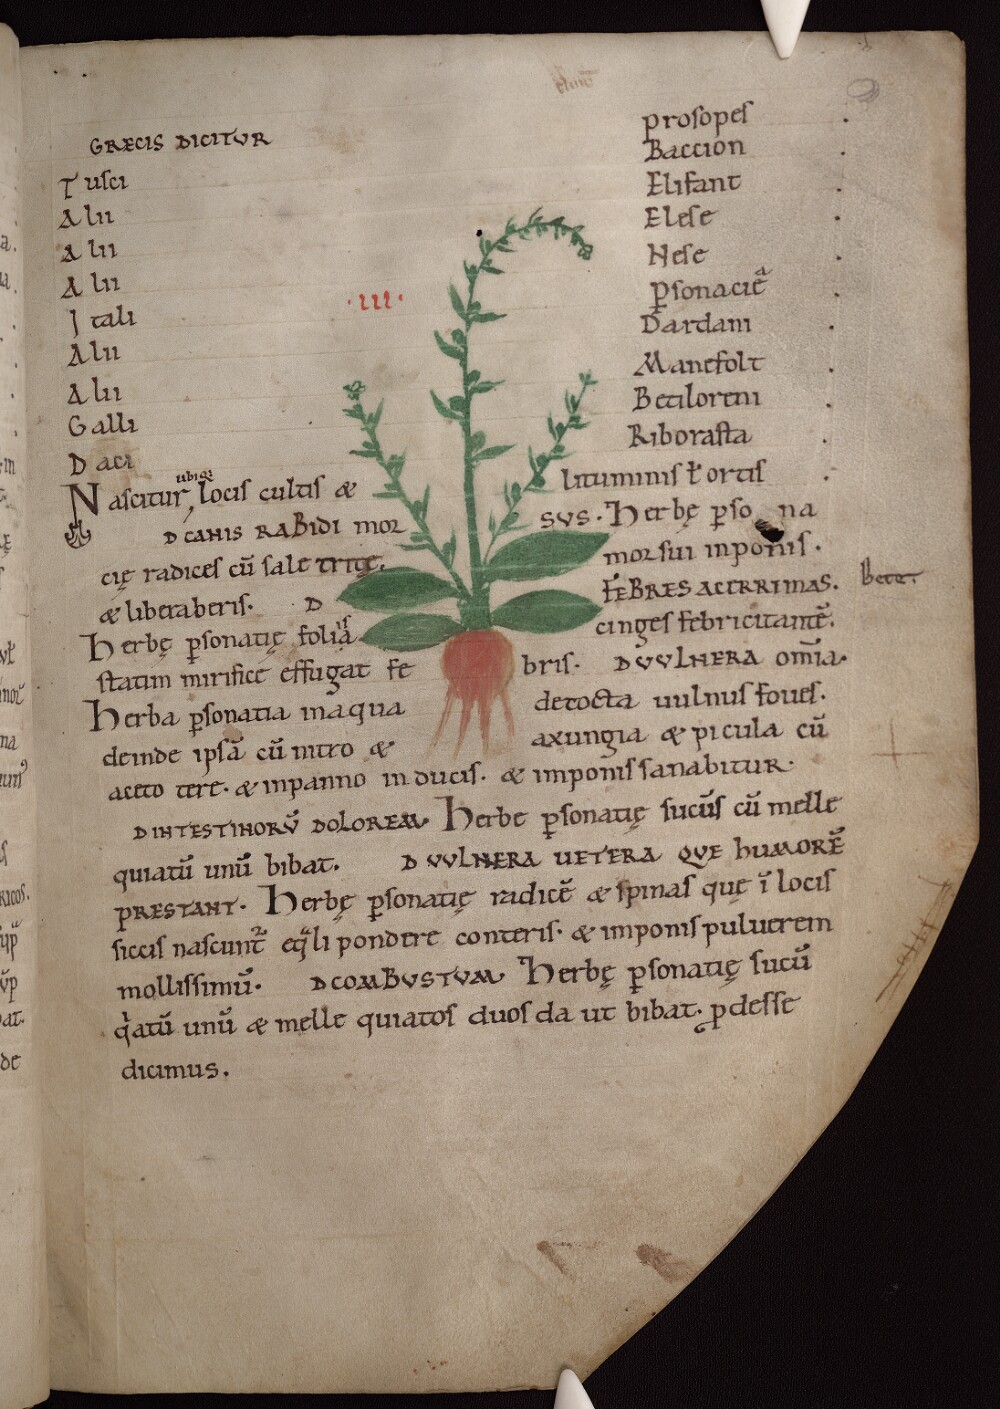 GRECIS DICITUR prosopes
Tusci Baccion
Alii Elifant
Alii Elese
Alii Nese
·III· Itali p̱sonaciē̄
Alii Dardani
Alii Manefolt
Galli Betiloreni
Daci Riborasta
Nascitur ubiqꝫ locis cultis & lituminis ł ortis
D CANIS RABIDI MOR SUS· Herbę ꝑso na
cię radices cū sale tritę. morsui inponis·
& liberaberis· D FEBRES ACERRIMAS·
Herbę ꝑsonatię foliis cinges febricitantē·
statim mirificę effugat fe bris· D VULNERA omīa·
Herba ꝑsonatia inaqua decocta uulnus foues·
deinde ipsā cū nitro & axungia & picula cū
aceto tere· & inpanno inducis· & imponis sanabitur·
D INTESTINORŪ DOLOREM· Herbe ꝑsonatię sucūs cū melle
quiatū unū bibat. D VULNERA UETERA QUE HUMORĒ
PRESTANT· Herbę ꝑsonatię radicē & spinas quę ī locis
siccis nascunt̄ eq̄li pondere conteris· & imponis puluerem
mollissimū· D COMBUSTUM Herbę ꝑsonatię sucū
qͥatū unū & melle quiatos duos da ut bibat· ꝓdesse
dicimus.